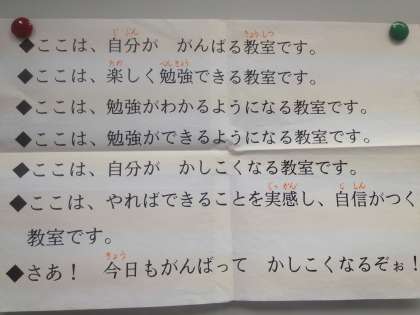 ◆ここは、自分が　がんばる教室です。
◆ここは、楽しく勉強できる教室です。
◆ここは、勉強がわかるようになる教室です。
◆ここは、勉強ができるようになる教室です。
◆ここは、自分が　かしこくなる教室です。
◆ここは、やればできることを実感し、自信がつく
教室です。
◆さあ！　今日もがんばって　かしこくなるぞぉ！